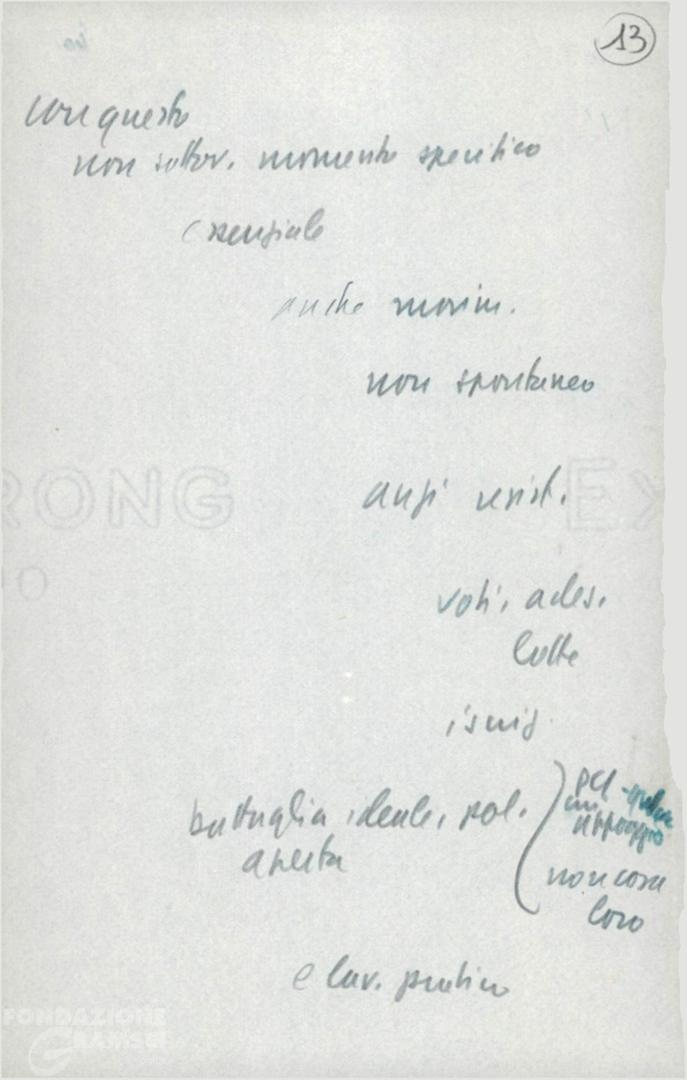 13
con questo
non sottov. momento specifico
essenziale
anche movim.
non spontaneo
anzi resist.
voti, ades.
lotte
battaglia ideale, pol.
aperta
PCI
appoggio
non cosa
loro
e lav. pratico
RONG
EX
FONDAZIONE
GRAMSCI